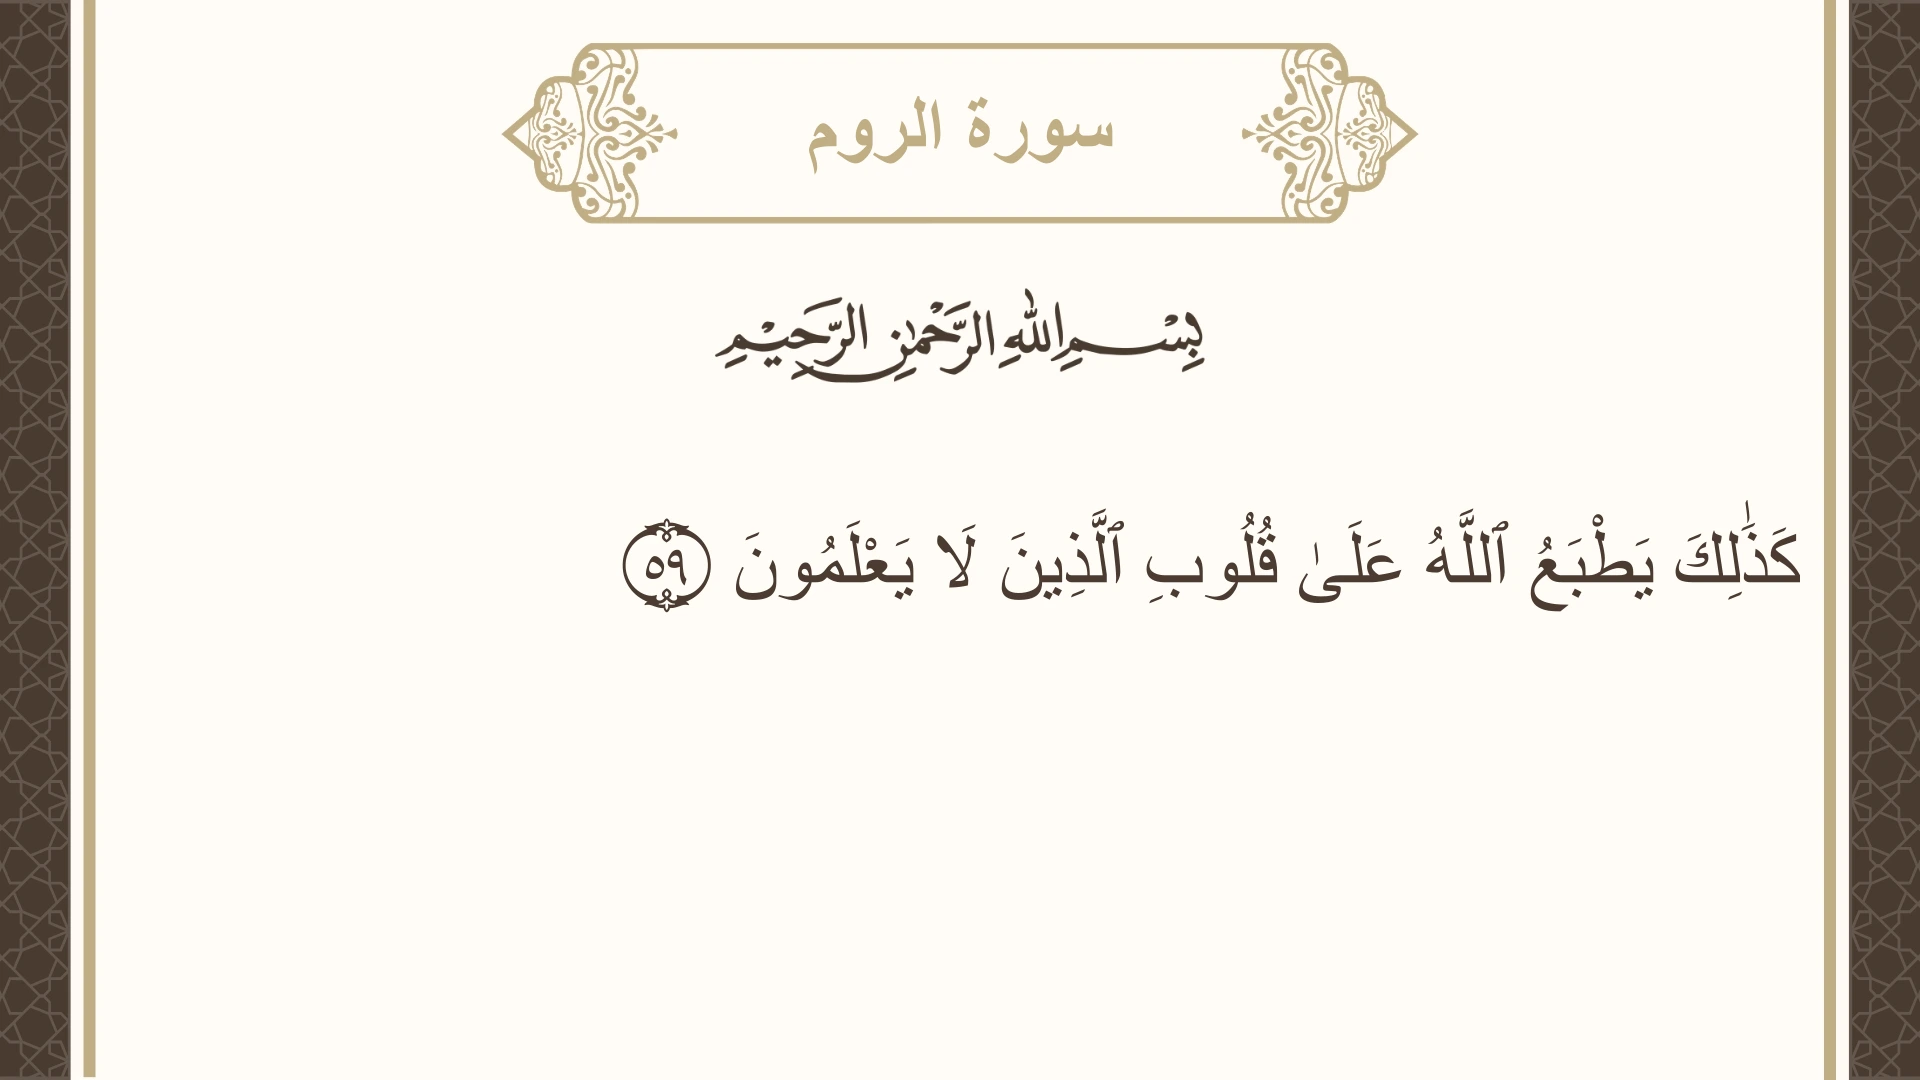 سورة الروم
بِسْمِ اللهِ الرَّحْمٰنِ الرَّحِيْمِ
كَذَٰلِكَ يَطْبَعُ ٱللَّهُ عَلَىٰ قُلُوبِ ٱلَّذِينَ لَا يَعْلَمُونَ ٥٩